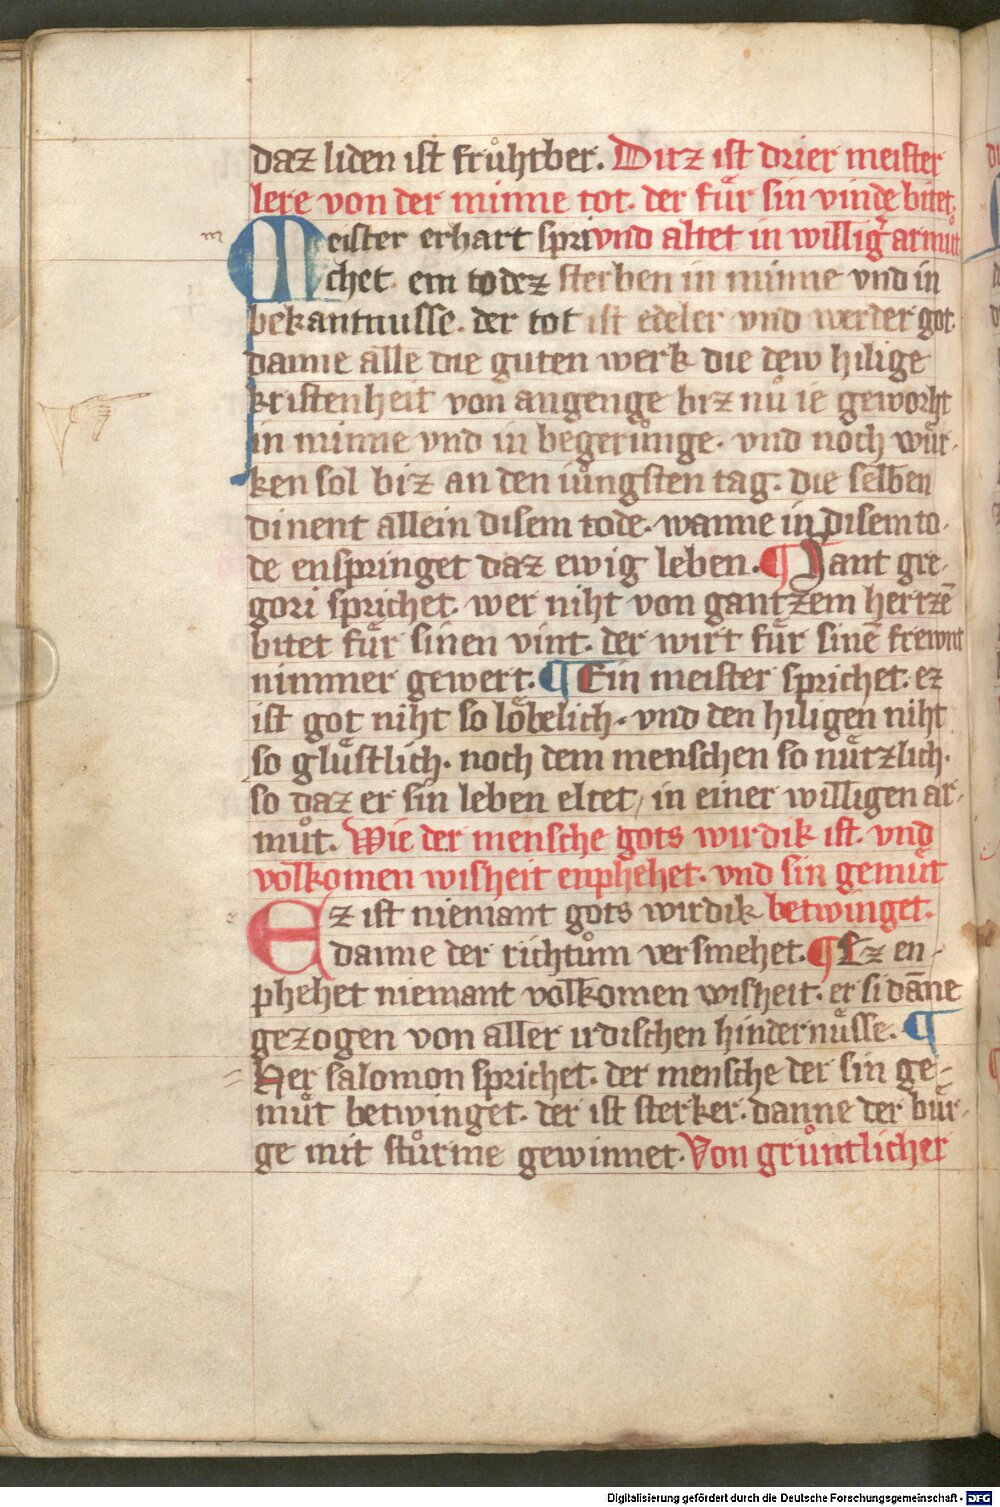 daz liden ist fruͦhtber. Ditz ist drier meister
lere von der minne tot. der fuͤr sin vinde bitet.
Meister erhart spri vnd altet in willigͬ armuͦt
chet. ein todez sterben in minne vnd in
bekantnusse. der tot ist edeler vnd werder got.
danne alle die guten werk die dew hilige
kristenheit von angenge biz nuͦ ie geworht
in minne vnd in begeruͦnge. vnd noch wuͤr-
ken sol biz an den iuͦngsten tag. die selben
dinent allein disem tode. wanne in disem to-
de enspringet daz ewig leben. ¶ Sant gre-
gori sprichet. wer niht von gantzem hertzē
bitet fuͤr sinen vint. der wirt fuͤr sinē frewnt
nimmer gewert. ¶ Ein meister sprichet. ez
ist got niht so loͤbelich. vnd den hiligen niht
so gluͤstlich. noch dem menschen so nuͤtzlich.
so daz er sin leben eltet, in einer willigen ar-
muͦt. Wie der mensche gots wirdik ist. vnd
volkomen wisheit enphehet. vnd sin gemuͤt
Ez ist niemant gots wirdik betwinget.
danne der richtuͦm versmehet. ¶ Ez en-
phehet niemant volkomen wisheit. er si dāne
gezogen von aller irdischen hindernuͤsse. ¶
Her salomon sprichet. der mensche der sin ge-
muͤt betwinget. der ist sterker. danne der buͤr-
ge mit stuͤrme gewinnet. Von gruͦntlicher
Digitalisierung gefördert durch die Deutsche Forschungsgemeinschaft - DFG